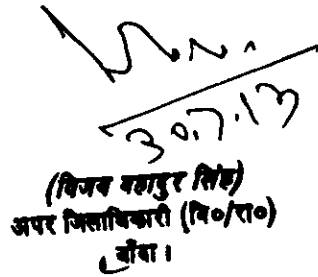 30.7.13
(विजय बहादुर सिंह)
अपर जिलाधिकारी (वि०/रा०)
बाँदा।